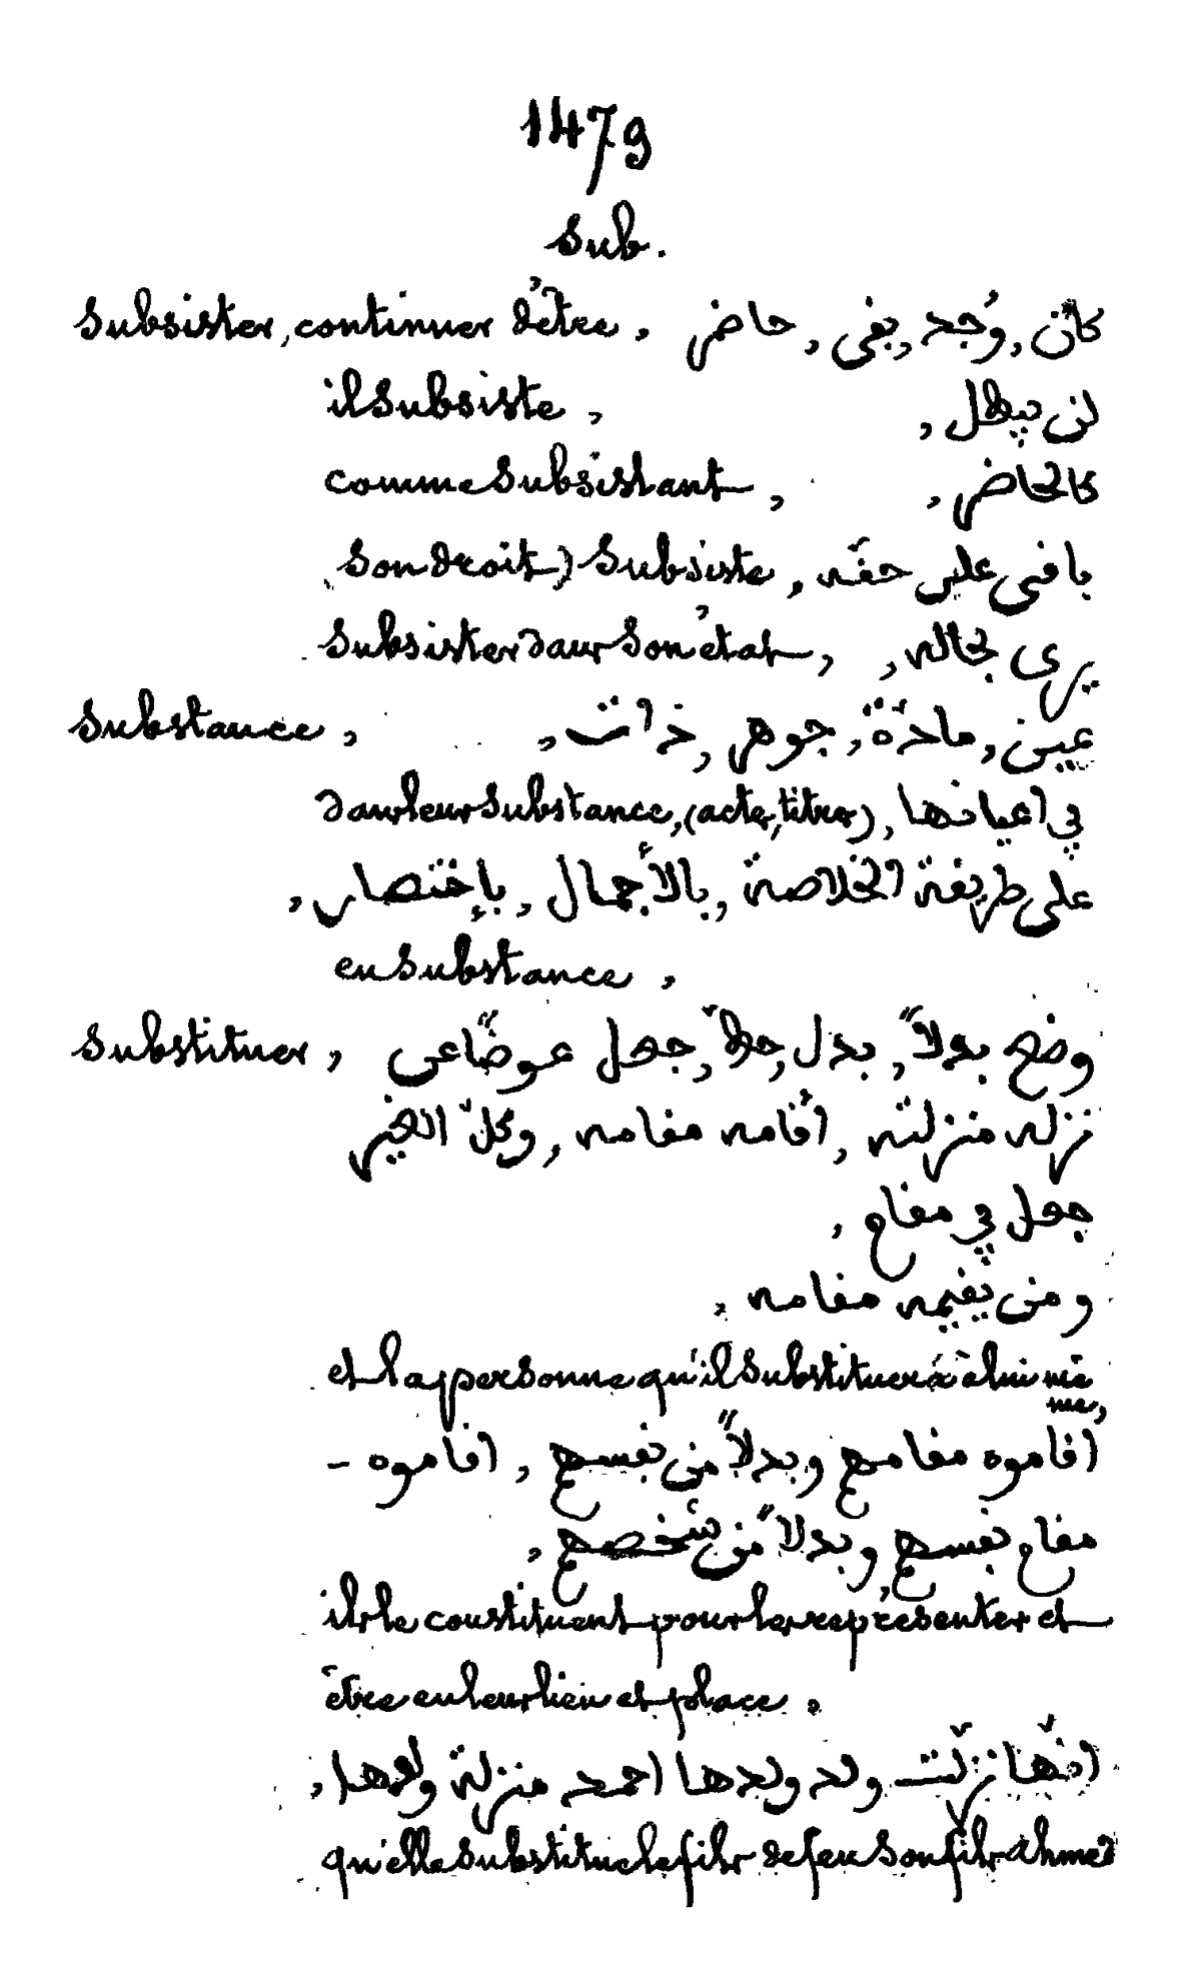 1479
Sub.
Subsister, continuer d'être, كائن, وُجد, بقى, حاضر
il subsiste, لن يبطل,
comme subsistant, كالحاضر,
Son droit) Subsiste, باقى على حقّه
Subsister dans Son état, يرى بحاله,
Substance, عين, مادّة, جوهر, ذات,
dans leur Substance, (acte, titres), في اعيانها
على طريقة الخلاصة, بالأجمال, بإختصار,
en Substance,
Substituer, وضع بدلاً, بدل, حطّ, جعل عوضًا عن
نزله منزلته, أقامه مقامه, وكلّ الغير
جعل في مقام,
ومن يقيمه مقامه,
et la personne qu'il Substituera à lui mê
me,
اقاموه مقامهم وبدلاً من نفسهم, اقاموه -
مقام نفسهم وبدلاً من شخصهم,
ils le constituent pour les représenter et
être en leur lieu et place,
انّها نزّلت ولد ولدها احمد منزلة ولدها,
qu'elle Substitue le fils de feu Son fils Ahmed